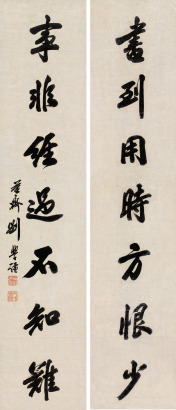 書到用時方恨少
事非經過不知難
葦齋劉學𤩽